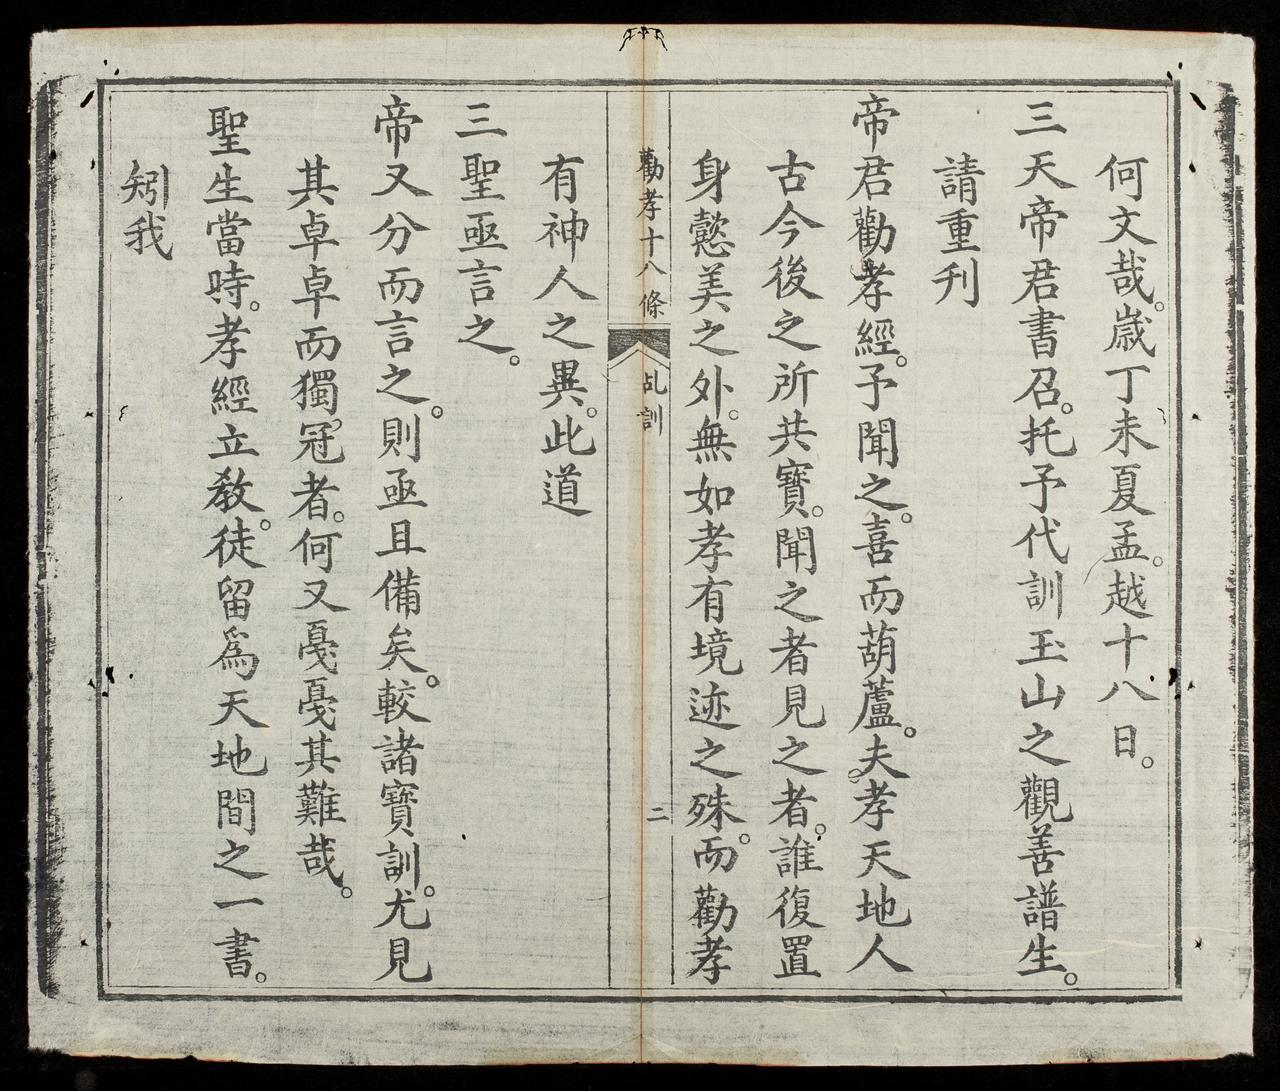 何文哉。歲丁未夏孟。越十八日。
三天帝君書召。托予代訓玉山之觀善譜生。
請重刊
帝君勸孝經。予聞之。喜而葫蘆。夫孝天地人
古今後之所共寶。聞之者見之者。誰復置
身懿美之外。無如孝有境迹之殊。而勸孝
勸孝十八條 乩訓 二
有神人之異。此道
三聖亟言之。
帝又分而言之。則亟且備矣。較諸寶訓。尤見
其卓卓而獨冠者。何又戞戞其難哉。
聖生當時。孝經立教。徒留爲天地間之一書。
矧我